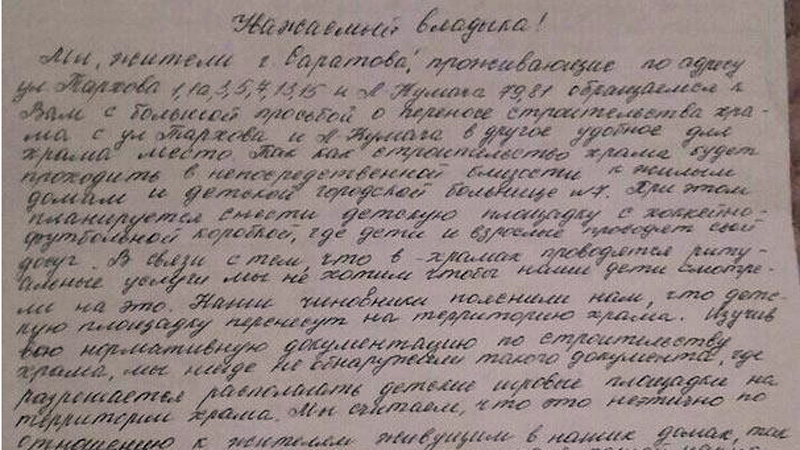 Уважаемый владыка!
Мы, жители г. Саратова, проживающие по адресу
ул Тархова 1,1а,3,5,7,13,15 и Л Кумача 79,81 обращаемся к
Вам с большой просьбой о переносе строительства хра-
ма с ул Тархова и Л Кумача в другое удобное для
храма место. Так как строительство храма будет
проходить в непосредственной близости к жилым
домам и детской городской больнице №7. При этом
планируется снести детскую площадку с хоккейно-
футбольной коробкой, где дети и взрослые проводят свой
досуг. В связи с тем, что в храмах проводятся риту-
альные услуги мы не хотим чтобы наши дети смотре-
ли на это. Наши чиновники пояснили нам, что детс-
кую площадку перенесут на территорию храма. Изучив
всю нормативную документацию по строительству
храма, мы нигде не обнаружили такого документа, где
разрешается располагать детские игровые площадки на
территории храма. Мы считаем, что это неэтично по
отношению к жителям живущим в наших домах, так